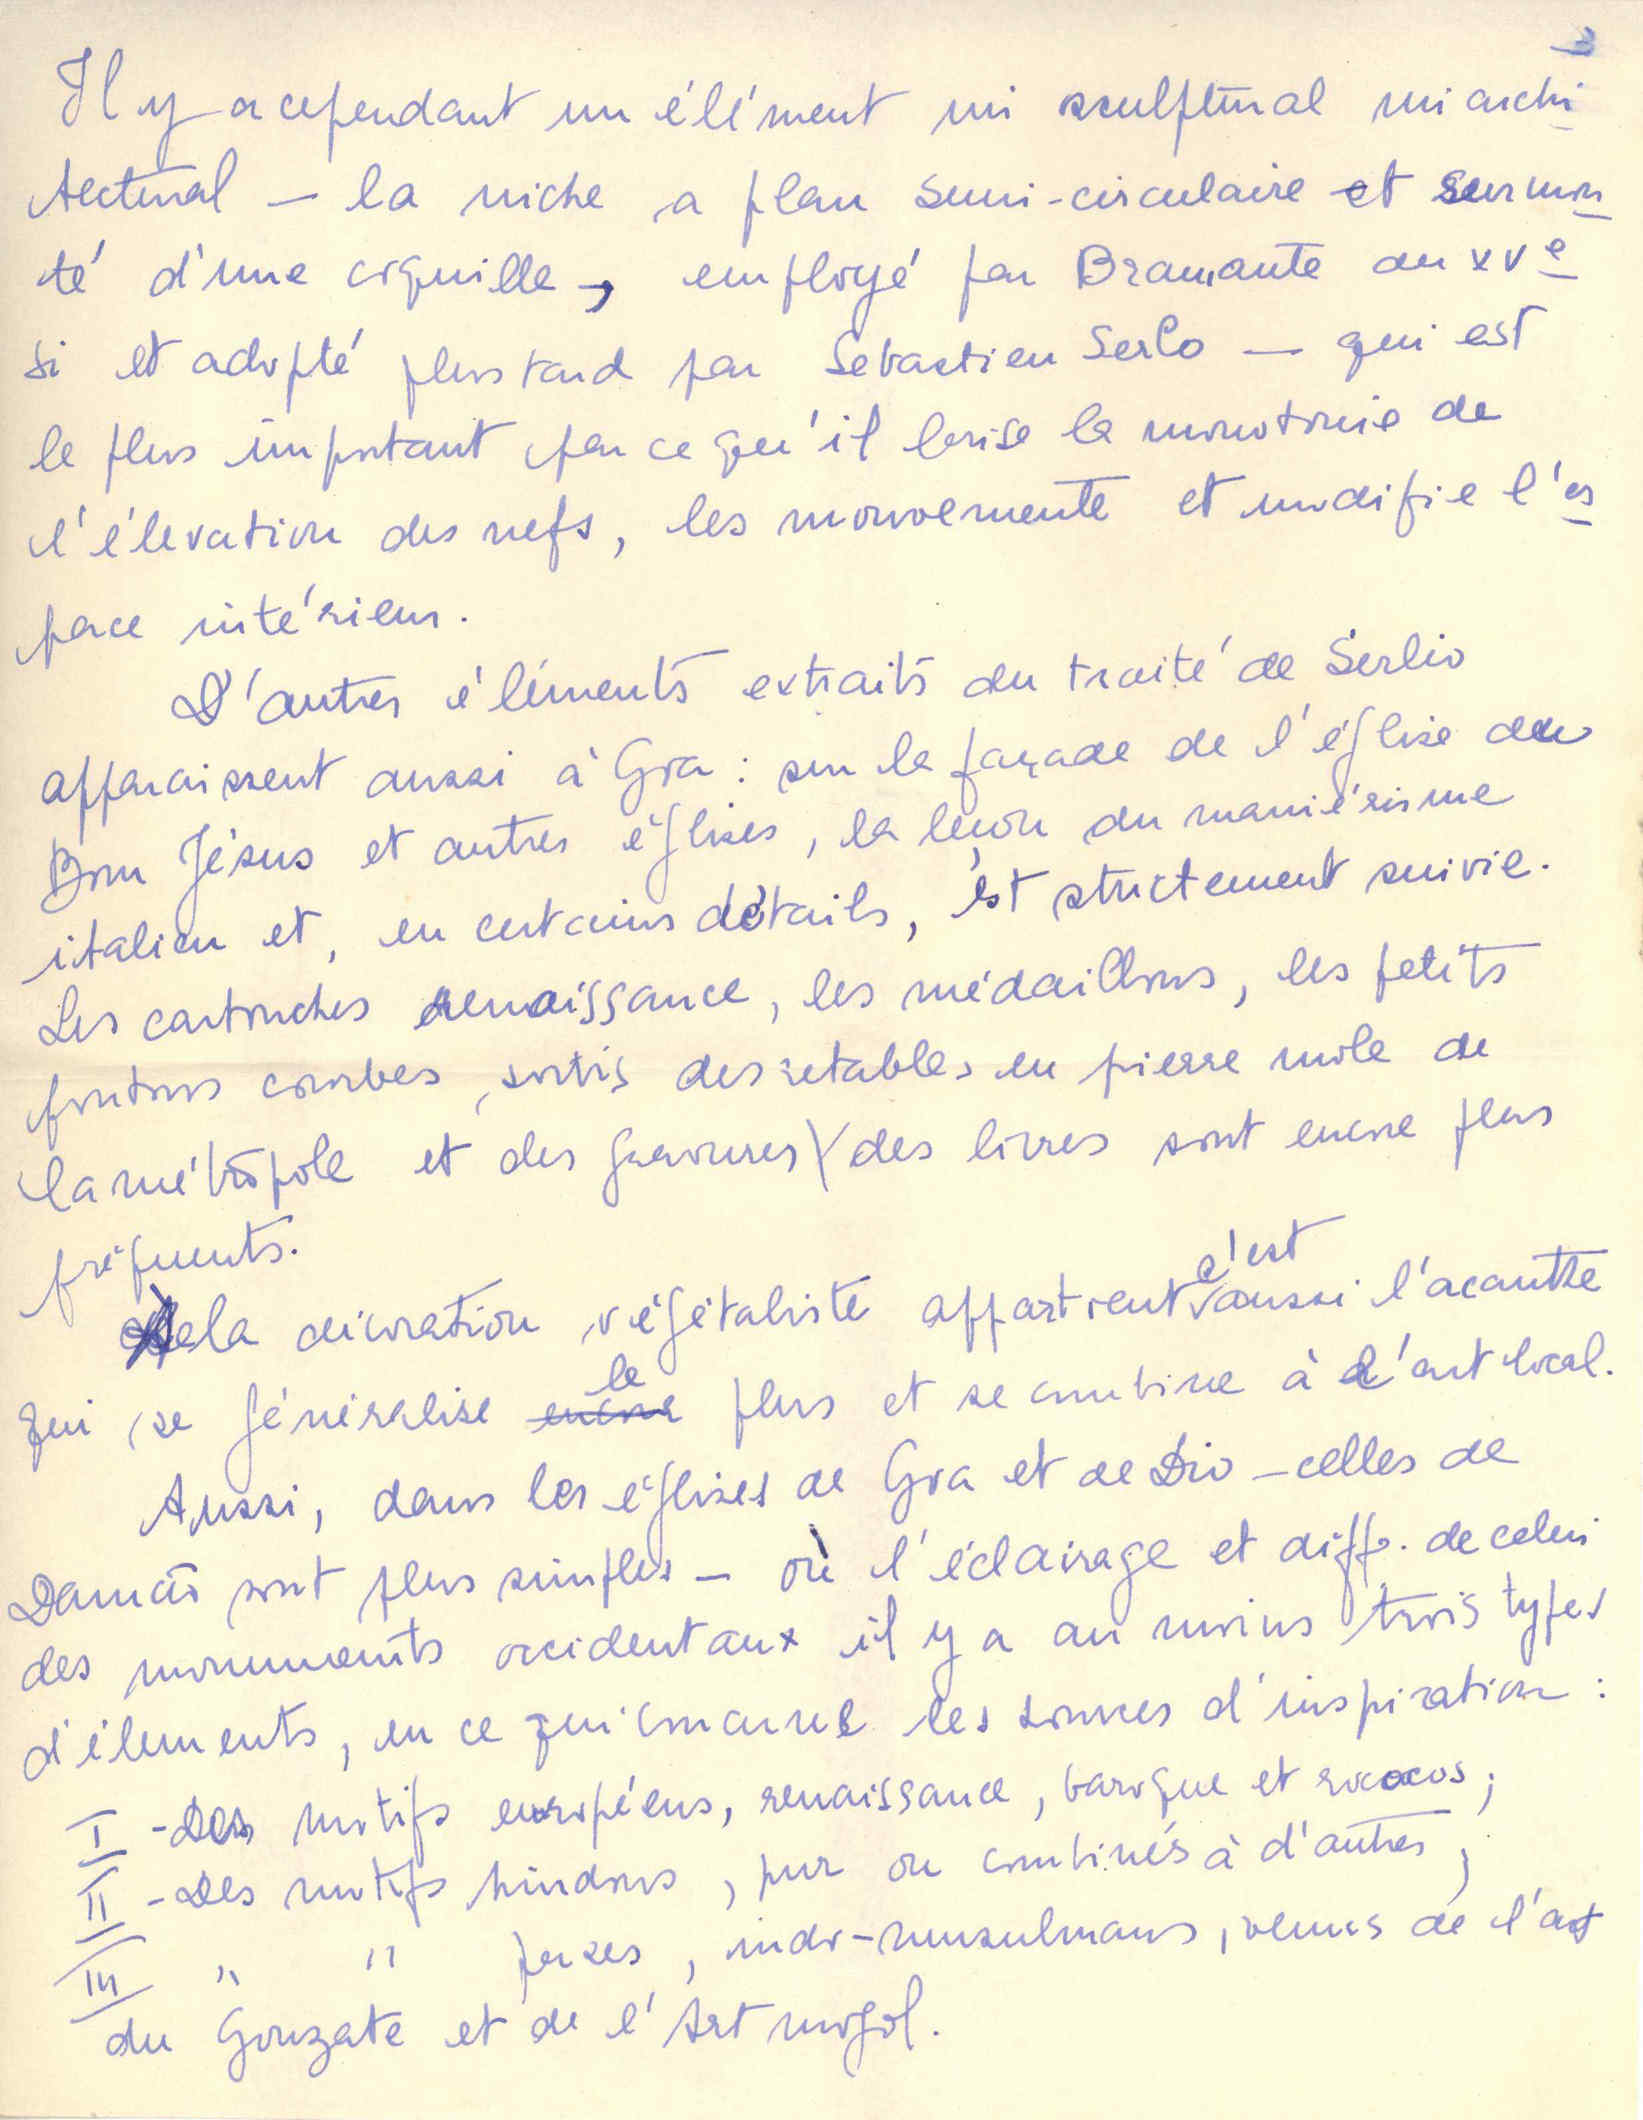 3
Il y a cependant un élément mi sculptural mi archi
tectural — la niche a plan semi-circulaire et surmon
té d'une coquille —, employé par Bramante au XVe
si et adopté plus tard par Sebastien Serlo — qui est
le plus important par ce qu'il brise la monotonie de
l'élevation des nefs, les mouvemente et modifie l'es
pace intérieur.
D'autres éléments extraits du traité de Serlio
apparaissent aussi à Goa : sur la façade de l'église du
Bom Jésus et autres églises, la leçon du maniérisme
italien et, en certains détails, est strictement suivie.
Les cartouches renaissance, les médaillons, les petits
frontons courbes, sortis des retables en pierre mole de
la métropole et des gravures des livres sont encore plus
fréquents.
De la décoration végétaliste appartient c'est aussi l'acanthe
qui se généralise encore le plus et se combine à l'art local.
Aussi, dans les églises de Goa et de Dio – celles de
Damão sont plus simples – où l'éclairage et diff. de celui
des monuments occidentaux il y a au moins trois types
d'élements, en ce qui concerne les sources d'inspiration :
I - Des motifs européens, renaissance, baroque et rococos ;
II - Des motifs hindous, pur ou combinés à d'autres ;
III " " perses, indo-musulmans, venus de l'art
du Gouzate et de l'Art mogol.